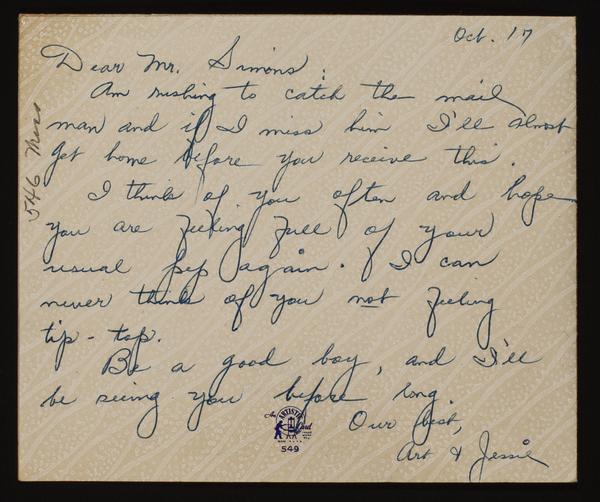 Oct. 17
Dear Mr. Simons:
Am rushing to catch the mail
man and if I miss him I'll almost
get home before you receive this.
I think of you often and hope
you are feeling full of your
usual pep again. I can
never think of you not feeling
tip-top.
Be a good boy, and I'll
be seeing you before long.
Our best,
Art & Jessie
546
An
ARTISTIC
Card
549